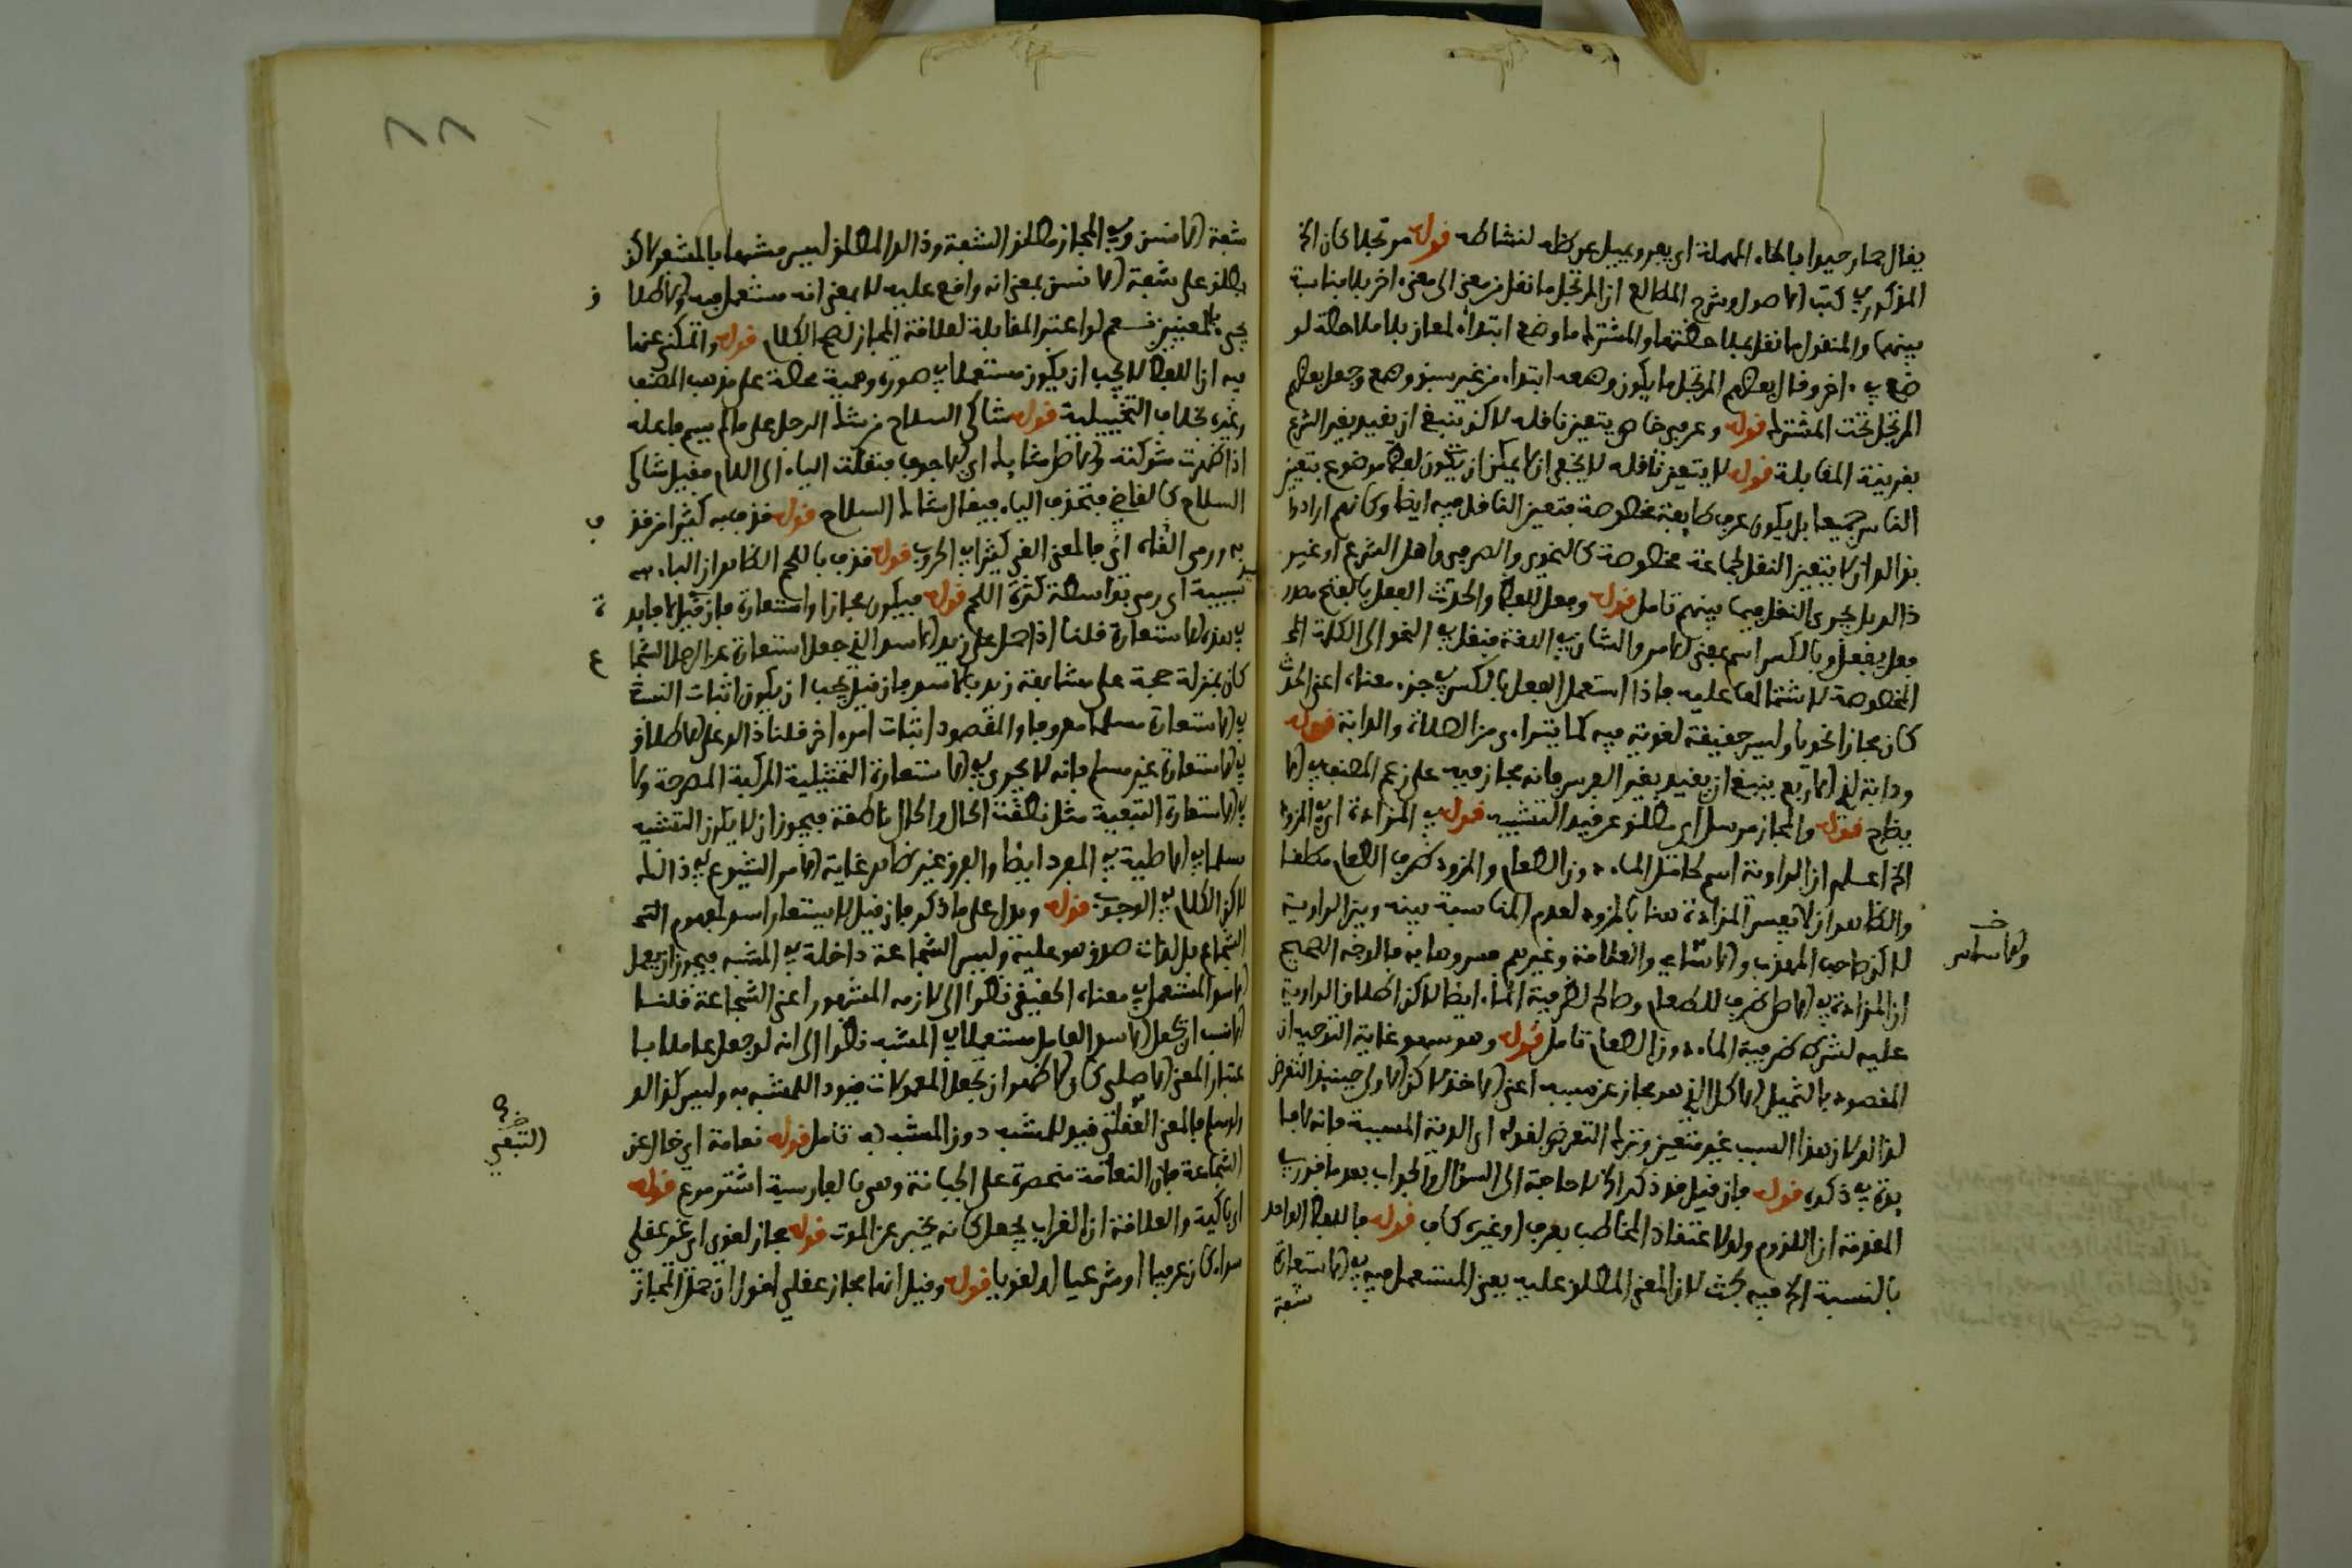 يقال حمار حيدا بالحاء المهملة اي يعر ويميل عن ظله لنشاطه قوله مرتجلا كان الخ
المذكور في كتب الاصول وشرح المطالع ان المرتجل ما نقل من معنى الى معنى اخر بلا مناسبة
بينهما والمنقول ما نقل بملاحظتها والمشترك ما وضع ابتداء لمعان بلا ملاحظة لو
ضع في اخر وقال بعضهم المرتجل ما يكون وضعه ابتداء من غير سبق وضع وجعل بعضهم
المرتجل تحت المشترك قوله وعرفي خاص يتعين ناقله لاكن ينبغي ان يقيد بغير الشرع
بقرينة المقابلة قوله لا يتعين ناقله لا يخفى ان لا يمكن ان يكون لفظ موضوع بتعيين
الناس جميعا بل يكون عرف طايفة مخصوصة فتعين الناقل فيه ايضا وكانهم ارادوا
بذالك ان لا يتعين النقل لجماعة مخصوصة كالنحوي والصرفي واهل الشرع او غير
ذالك بل يجري النقل فيما بينهم تامل قوله وفعل للفظ والحدث الفعل بالفتح مصدر
فعل يفعل وبالكسر اسم بمعنى الامر والشان في اللغة فنقل في النحو الى الكلمة الخ
المخصوصة لاشتمالها عليه فاذا استعمل الفعل بالكسر في جزء معناه اعني الحدث
كان مجازا نحويا وليس حقيقة لغوية فيه كما يتراءى من الصلاة والدابة قوله
ودابة لذي الاربع ينبغي ان يقيد بغير الفرس فانه مجاز فيه على زعم المصنف في الا
يضاح قوله والمجاز مرسل اي مطلق عن قيد التشبيه قوله في المزادة اي في المزود
الخ اعلم ان الراوية اسم لحامل الماء دون الطعام والمزود ظرف الطعام مطلقا
والظاهر ان لا تفسر المزادة هنا بالمزود لعدم المناسبة بينه وبين الراوية
لاكن صاحب المهذب والاسامي والعلامة وغيرهم فسروها به فالوجه الصحيح
ان المزادة في الاصل ظرف للطعام وصالح لظرفية الماء ايضا لاكن اطلاق الراوية
عليه لشركة ظرفية الماء دون الطعام تامل قوله وهو سهو غاية التوجيه ان
المقصود بالتمثيل الاكل الذي هو مجاز عن سببه اعني الاخذ لاكن الاولى حينيذ التعرض
لذالك لان هذا السبب غير متعين وترك التعرض لقوله اي الدية المسببة فانه لا فا
يدة في ذكره قوله فان قيل قد ذكر الخ لا حاجة الى السؤال والجواب بعد ما قرر في
المقدمة ان اللزوم ولو لاعتقاد المخاطب بعرف او غيره كاف قوله فاللفظ الواحد
بالنسبة الخ فيه بحث لان المعنى المطلق عليه يعني المستعمل فيه في الاستعارة
شفة
والاساس
شفة الانسان وفي المجاز مطلق الشفة وذالك المطلق ليس مشبها بالمشفر لاكن
يطلق على شفة الانسان بمعنى انه واقع عليه لا بمعنى انه مستعمل فيه والاطلا
ق
يجيء بالمعنيين نعم لو اعتبر المقابلة لعلاقة المجاز لصح الكلام قوله والمكني عنها
فيه ان اللفظ لا يجب ان يكون مستعملا في صورة وهمية محضة على مذهب المصنف
وغيره بخلاف التخييلية قوله شاكي السلاح من شاك الرجل على ما لم يسم فاعله
اذا ظهرت شوكته والاصل شايك اي الاجوف فنقلت الياء الى اللام فقيل شاكي
السلاح كالقاضي فتحذف الياء فيقال شاك السلاح قوله قذف به كثيرا من قذ
ف
به ورمى القاه اي فالمعنى القي كثيرا في الحروب قوله قذف باللحم الظاهر ان الباء
سببية اي رمي بواسطة كثرة اللحم قوله فيكون مجازا واستعارة فان قيل لا فايد
ة
في هذه الاستعارة قلنا اذا حمل على زيد الاسد الذي جعل استعارة عن الرجل الشجا
ع
كان بمنزلة حجة على مشابهة زيد بالاسد فان قيل يجب ان يكون اثبات التشبيه
في الاستعارة مسلما معروفا والمقصود اثبات امر اخر قلنا ذالك على الاطلاق
في الاستعارة غير مسلم فانه لا يجري في الاستعارة التمثيلية المركبة المصرحة ولا
في الاستعارة التبعية مثل نطقت الحال والحال ناطقة فيجوز ان لا يكون التشبيه
مسلما في الاصلية في المفرد ايضا والفرق غير ظاهر غاية الامر الشيوع في ذالك
لاكن الكلام في الوجوب قوله ويدل على ما ذكر فان قيل لا يستعار اسد لمفهوم
الشجاع بل لذات صدق هو عليه وليس الشجاعة داخلة في المشبه فيجوز ان يعمل
الاسد المستعمل في معناه الحقيقي نظرا الى لازمه المشهور اعني الشجاعة قلنا
الانسب ان يجعل الاسد العامل مستعملا في المشبه نظرا الى انه لو جعل عاملا با
عتبار المعنى الاصلي كان الاظهر ان يجعل المعمولات قيودا للمشبه به وليس كذالك
قيد للمشبه دون المشبه به تامل قوله نعامة اي خال عن
الشجاعة فان النعامة منحصرة على الجبانة وهي بالفارسية اشتر مرغ قوله
اي باكية والعلاقة ان الغراب يجعل كانه يخبر عن الموت قوله مجاز لغوي اي غير عقلي
سواء كان عرفيا او شرعيا او لغويا قوله وقيل انها مجاز عقلي اقول ان حمل المجاز